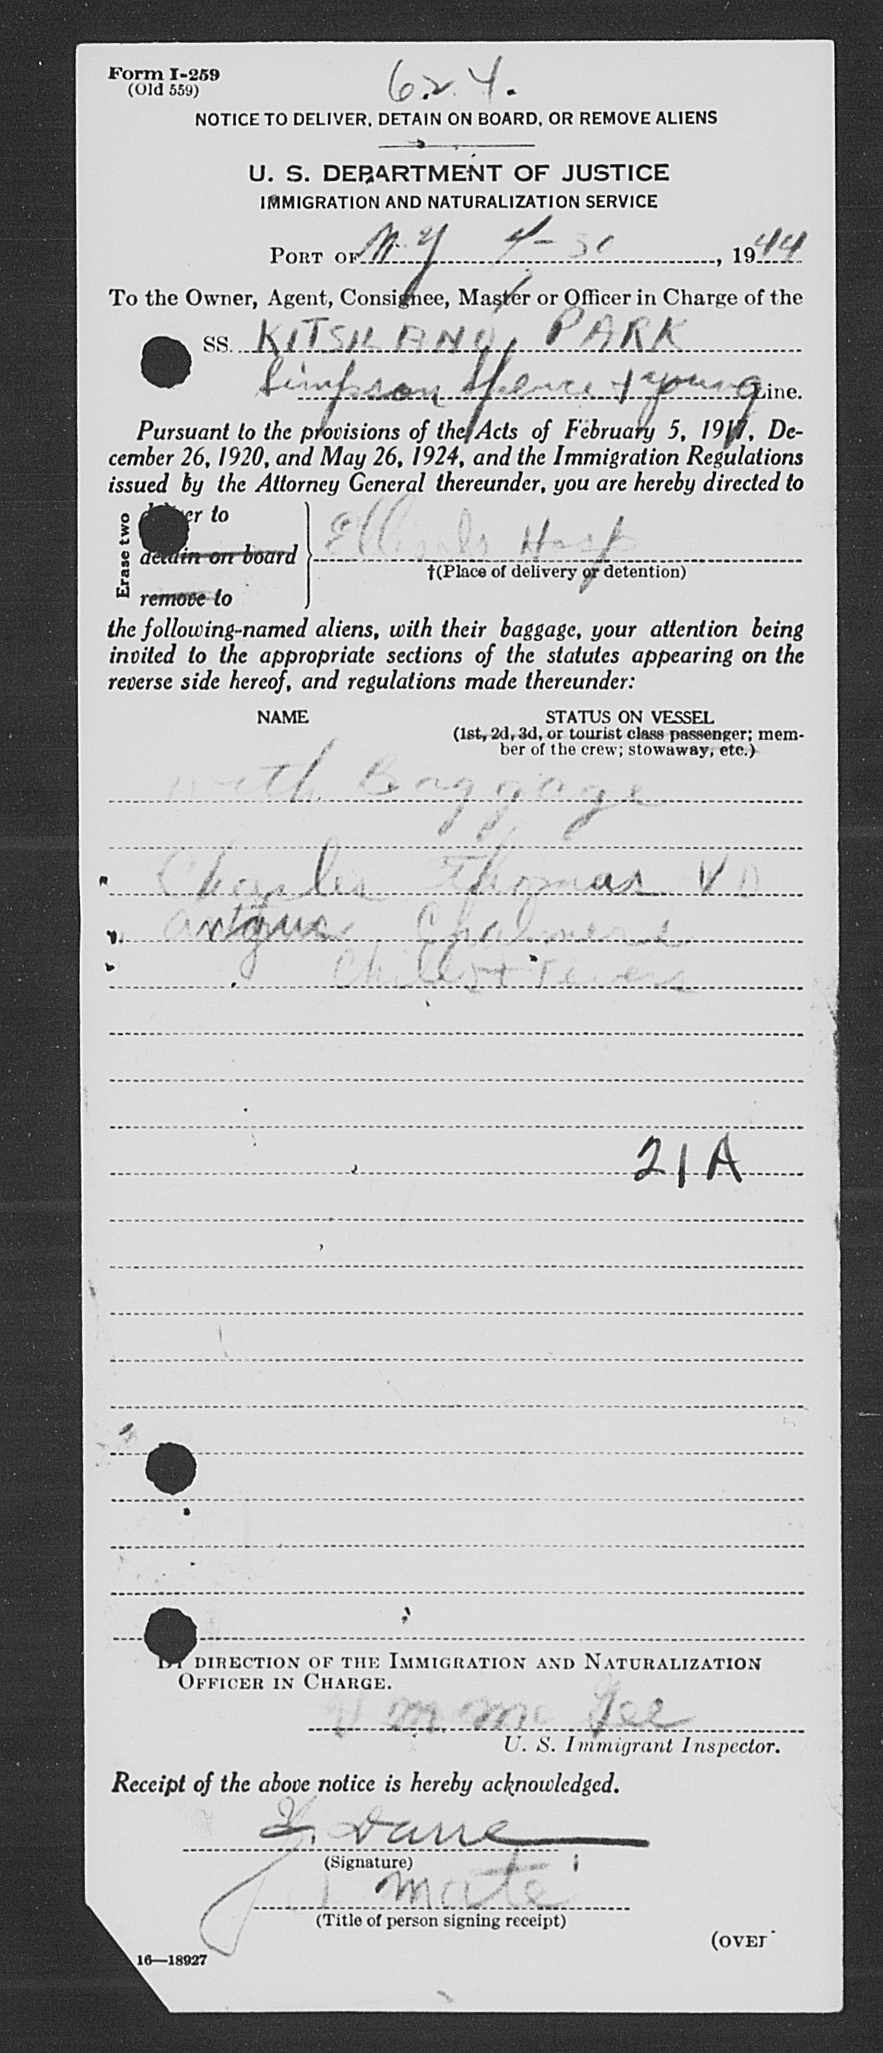 Form I-259
(Old 559)
6.24.
NOTICE TO DELIVER, DETAIN ON BOARD, OR REMOVE ALIENS
U. S. DEPARTMENT OF JUSTICE
IMMIGRATION AND NATURALIZATION SERVICE
PORT OF N.Y 4-30, 1944
To the Owner, Agent, Consignee, Master or Officer in Charge of the
SS. KITSILANO PARK
Simpson Spence + Young Line.
Pursuant to the provisions of the Acts of February 5, 1917, De-
cember 26, 1920, and May 26, 1924, and the Immigration Regulations
issued by the Attorney General thereunder, you are hereby directed to
Erase two
deliver to
detain on board
remove to
Ellis Is Hosp
†(Place of delivery or detention)
the following-named aliens, with their baggage, your attention being
invited to the appropriate sections of the statutes appearing on the
reverse side hereof, and regulations made thereunder:
NAME STATUS ON VESSEL
(1st, 2d, 3d, or tourist class passenger; mem-
ber of the crew; stowaway, etc.)
with Baggage
Charles Thomas VD
Chalmers
Chills + Fevers
21A
BY DIRECTION OF THE IMMIGRATION AND NATURALIZATION
OFFICER IN CHARGE.
Mc Gee
U. S. Immigrant Inspector.
Receipt of the above notice is hereby acknowledged.
(Signature)
1 mate
(Title of person signing receipt)
(OVER
16—18927